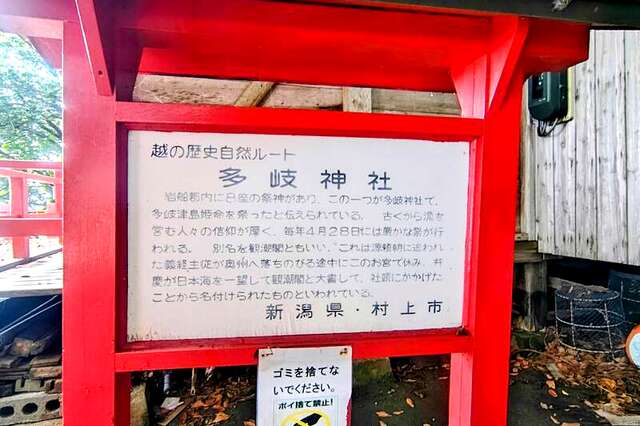 越の歴史自然ルート
多岐神社
岩船郡内に8座の祭神があり、この一つが多岐神社で、
多岐津島姫命を祭ったと伝えられている。 古くから漁を
営む人々の信仰が厚く、毎年4月28日には厳かな祭が行
われる。 別名を観潮閣ともいい、これは源頼朝に追われ
た義経主従が奥州へ落ちのびる途中にこのお宮で休み、弁
慶が日本海を一望して観潮閣と大書して、社頭にかかげた
ことから名付けられたものといわれている。
新潟県・村上市
ゴミを捨てな
いでください。
ポイ捨て禁止!